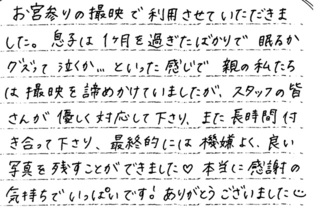 お宮参りの撮映で利用させていただきま
した。息子は1ヶ月を過ぎたばかりで 眠るか
グズって泣くか… といった感じで 親の私たち
は撮映を諦めかけていましたが、スタッフの皆
さんが 優しく対応して下さり、また長時間付
き合って下さり、最終的には機嫌よく、良い
写真を残すことができました♡ 本当に感謝の
気持ちでいっぱいです! ありがとうございました☺